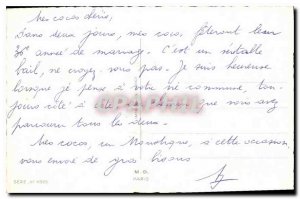 Mes cocos chéris,
Dans deux jours, mes cocos, fêteront leur
36e année de mariage. C'est un véritable
bail, ne croyez-vous pas. Je suis heureuse
lorsque je pense à votre vie commune, tou-
jours côté à côté que vous avez
parcouru tous les deux.
Mes cocos, un Monologue, à cette occasion,
vous envoie de gros bisous
SERIE
M.D.
PARIS